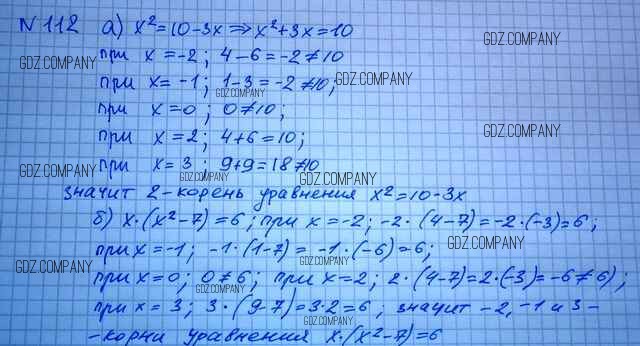 N 112 а) x²=10-3x ⇒ x²+3x=10
GDZ.COMPANY
при x=-2; 4-6=-2≠10
GDZ.COMPANY
при x=-1; 1-3=-2≠10;
GDZ.COMPANY
GDZ.COMPANY
при x=0; 0≠10;
при x=2; 4+6=10;
GDZ.COMPANY
при x=3; 9+9=18≠10
GDZ.COMPANY
GDZ.COMPANY
GDZ.COMPANY
значит 2-корень уравнения x²=10-3x
б) x·(x²-7)=6; при x=-2; -2·(4-7)=-2·(-3)=6;
при x=-1; -1·(1-7)=-1·(-6)=6;
GDZ.COMPANY
GDZ.COMPANY
при x=0; 0≠6; при x=2; 2·(4-7)=2·(-3)=-6≠6);
GDZ.COMPANY
при x=3; 3·(9-7)=3·2=6; значит -2,-1 и 3-
GDZ.COMPANY
-корни уравнения x·(x²-7)=6
GDZ.COMPANY